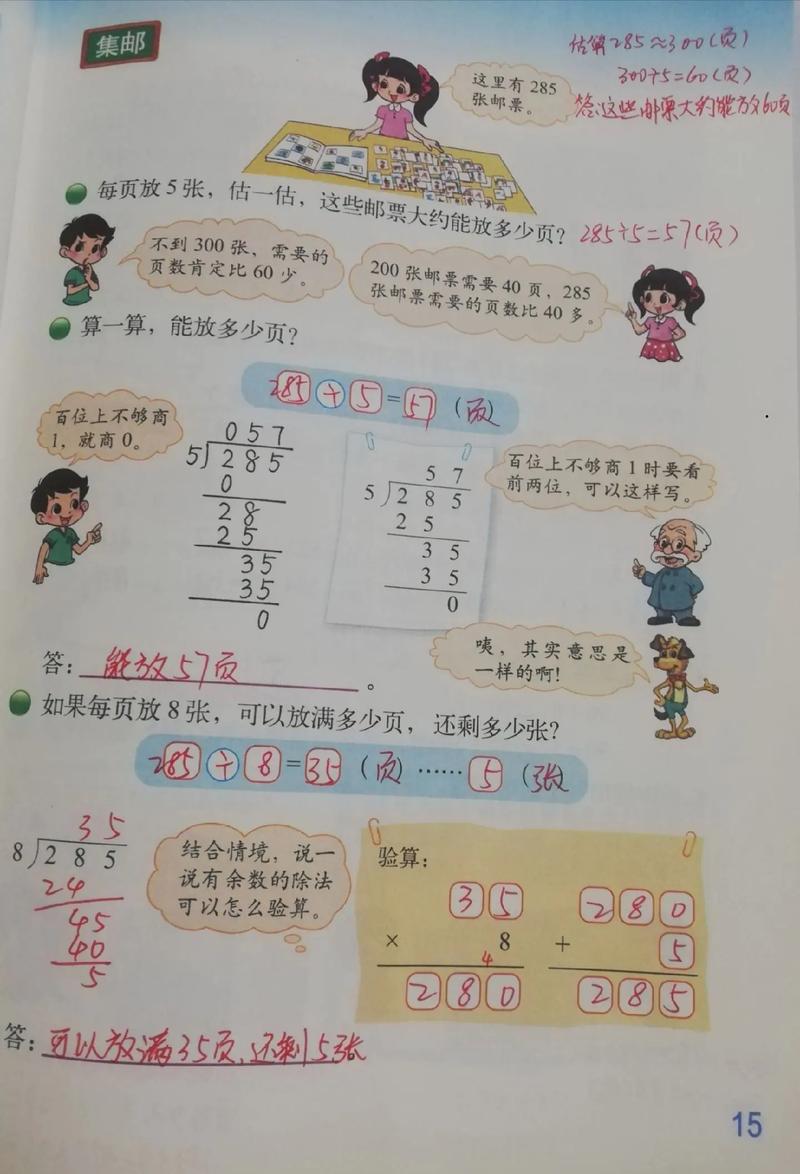 集邮
估算285≈300(页)
300÷5=60(页)
答:这些邮票大约能放60页
这里有 285
张邮票。
每页放 5 张，估一估，这些邮票大约能放多少页？
285÷5=57(页)
不到 300 张，需要的
页数肯定比 60 少。
200 张邮票需要 40 页，285
张邮票需要的页数比 40 多。
算一算，能放多少页？
285÷5=57(页)
百位上不够商
1，就商 0。
057
5)285
0
28
25
35
35
0
5 7
5)2 8 5
2 5
3 5
3 5
0
百位上不够商 1 时要看
前两位，可以这样写。
咦，其实意思是
一样的啊！
答：能放57页。
如果每页放 8 张，可以放满多少页，还剩多少张？
285÷8=35(页)……5(张)
35
8)2 8 5
24
45
40
5
结合情境，说一
说有余数的除法
可以怎么验算。
验算：
35
× 8
4
280
280
+ 5
285
答：可以放满35页,还剩5张
15